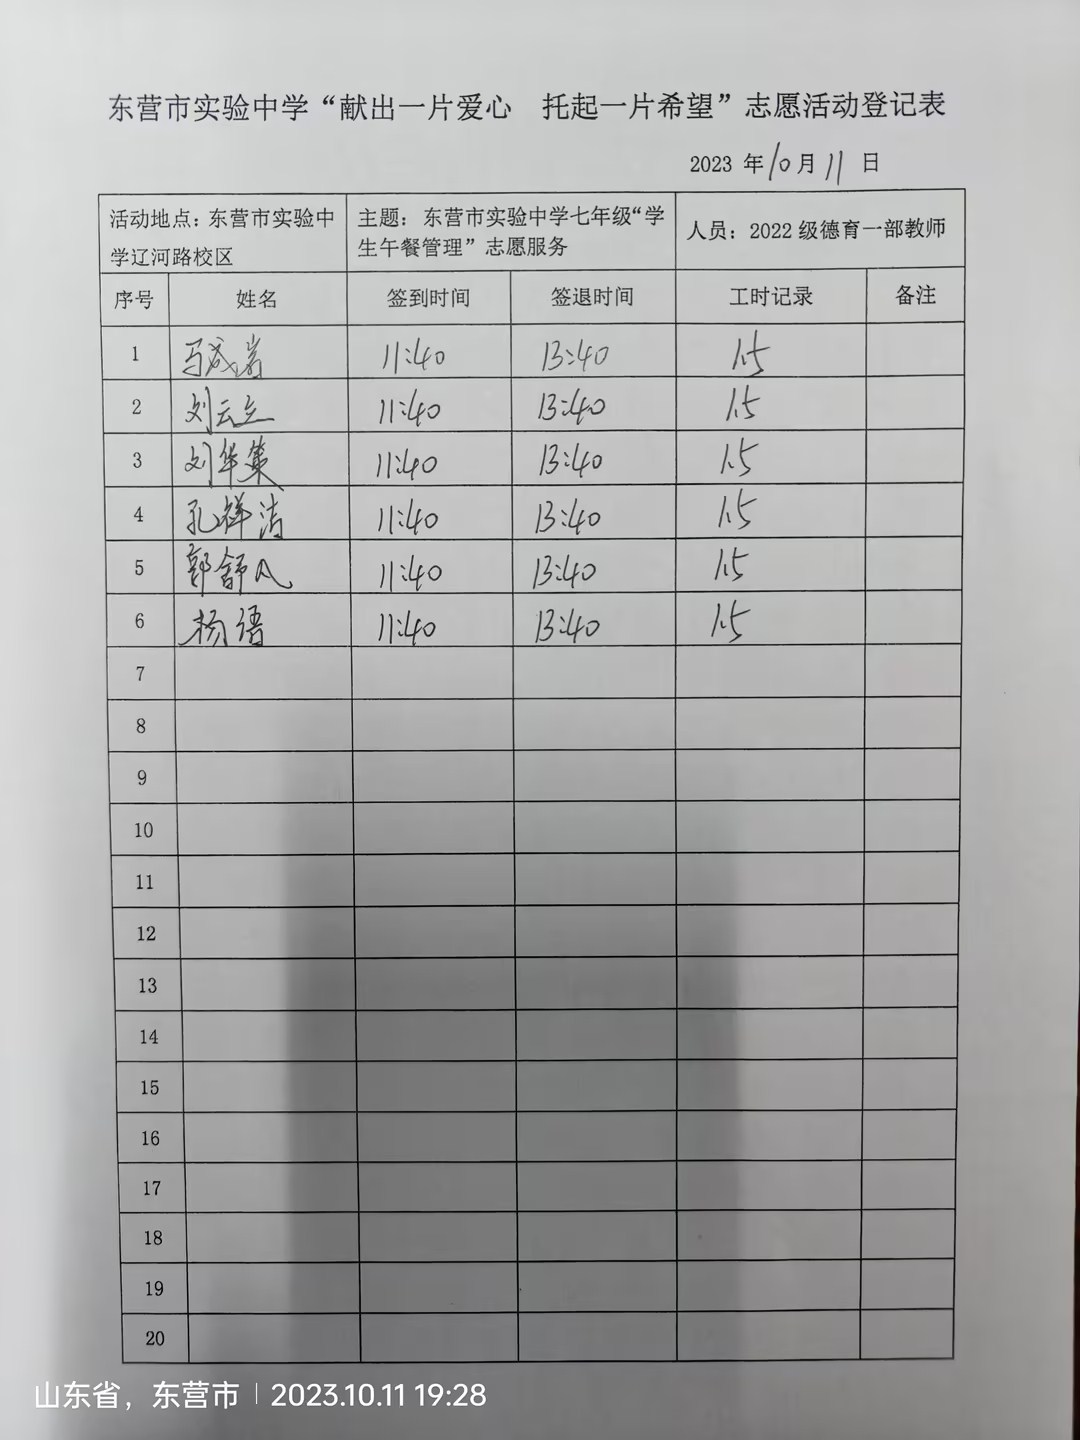 东营市实验中学“献出一片爱心　托起一片希望”志愿活动登记表
2023 年 10 月 11 日
活动地点：东营市实验中学辽河路校区 主题：东营市实验中学七年级“学生午餐管理”志愿服务 人员：2022 级德育一部教师
序号 姓名 签到时间 签退时间 工时记录 备注
1 马成岩 11:40 13:40 1.5
2 刘云立 11:40 13:40 1.5
3 刘华集 11:40 13:40 1.5
4 孔祥洁 11:40 13:40 1.5
5 郭舒凡 11:40 13:40 1.5
6 杨语 11:40 13:40 1.5
7
8
9
10
11
12
13
14
15
16
17
18
19
20
山东省，东营市 | 2023.10.11 19:28